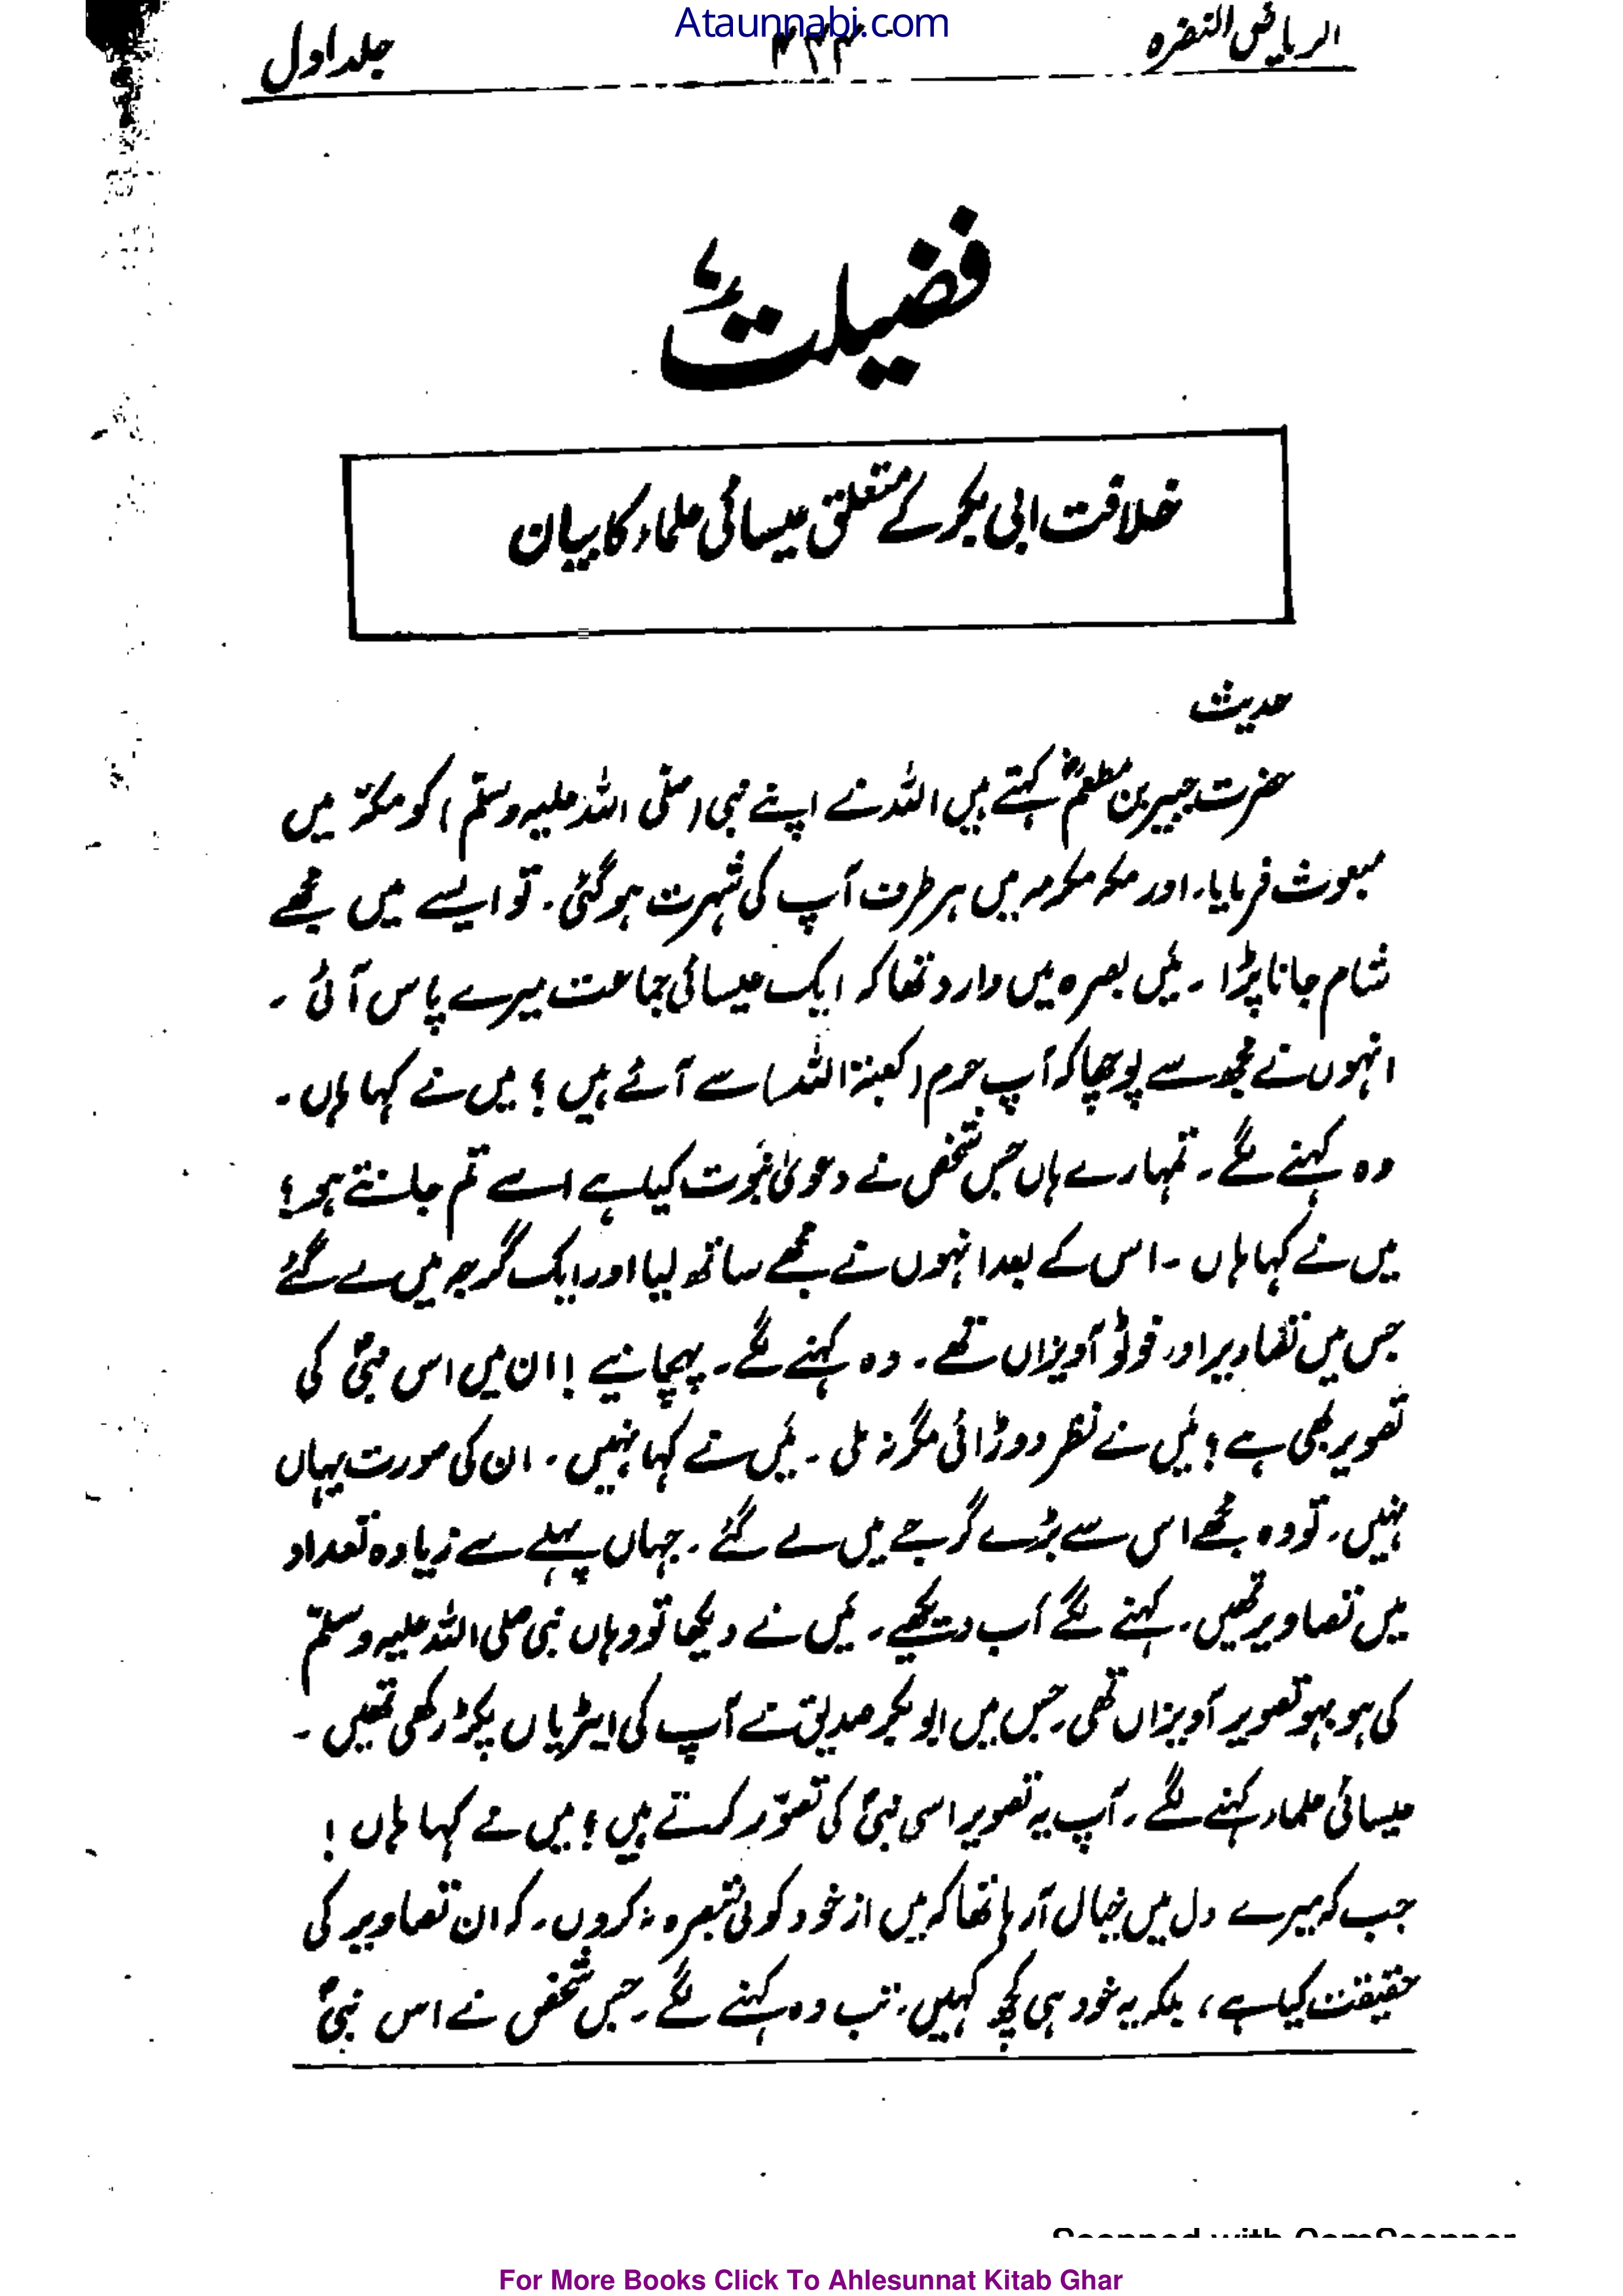 Ataunnabi.com
الریاض النضرہ ۴۲۴ جلد اول
فضیلت
خلافت ابی بکر کے متعلق عیسائی علماء کا بیان
حدیث
حضرت جبیر بن مطعمؓ کہتے ہیں اللہ نے اپنے نبی (صلّی اللہ علیہ وسلّم) کو مکہّ میں
مبعوث فرمایا۔ اور مکہ مکرمہ میں ہر طرف آپ کی شہرت ہو گئی۔ تو ایسے میں مجھے
شام جانا پڑا۔ مَیں بصرہ میں وارد تھا کہ ایک عیسائی جماعت میرے پاس آئی۔
انہوں نے مجھ سے پوچھا کہ آپ حرم (کعبۃ اللہ) سے آئے ہیں؟ میں نے کہا ہاں۔
وہ کہنے لگے۔ تمہارے ہاں جس شخص نے دعویٰ نبوّت کیا ہے اسے تم جانتے ہو؟
میں نے کہا ہاں۔ اس کے بعد انہوں نے مجھے ساتھ لیا اور ایک گرجہ میں لے گئے
جس میں تصاویر اور فوٹو آویزاں تھے۔ وہ کہنے لگے۔ پہچانیے! ان میں اس نبیؐ کی
تصویر بھی ہے؟ مَیں نے نظر دوڑائی مگر نہ ملی۔ مَیں نے کہا نہیں۔ ان کی صورت یہاں
نہیں۔ تو وہ مجھے اس سے بڑے گرجے میں لے گئے۔ جہاں پہلے سے زیادہ تعداد
میں تصاویر تھیں۔ کہنے لگے اَب دیکھیے۔ مَیں نے دیکھا تو وہاں نبی صلی اللہ علیہ وسلّم
کی ہو بہو تصویر آویزاں تھی۔ جس میں ابوبکر صدیق نے آپ کی ایڑیاں پکڑ رکھی تھیں۔
عیسائی علماء کہنے لگے۔ آپ یہ تصویر اسی نبیؐ کی تصوّر کرتے ہیں؟ میں نے کہا ہاں!
جب کہ میرے دل میں خیال آ رہا تھا کہ میں از خود کوئی تبصرہ نہ کروں۔ کہ ان تصاویر کی
حقیقت کیا ہے، بلکہ یہ خود ہی کچھ کہیں۔ تب وہ کہنے لگے۔ جس شخص نے اس نبیؐ
Scanned with CamScanner
For More Books Click To Ahlesunnat Kitab Ghar